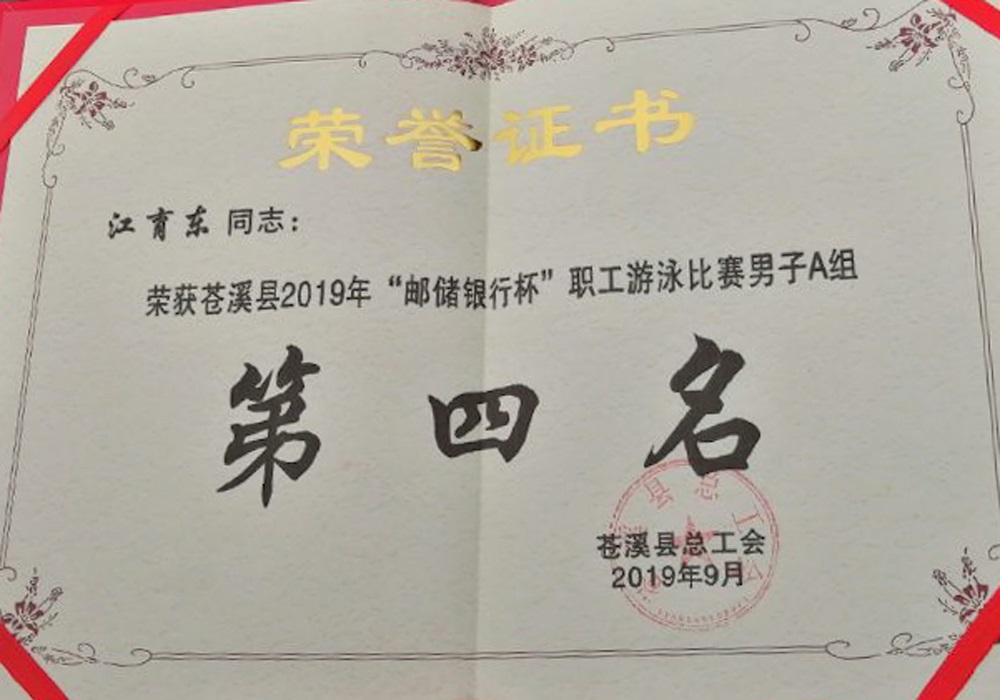 荣誉证书
江育东 同志：
荣获苍溪县2019年“邮储银行杯”职工游泳比赛男子A组
第四名
苍溪县总工会
2019年9月